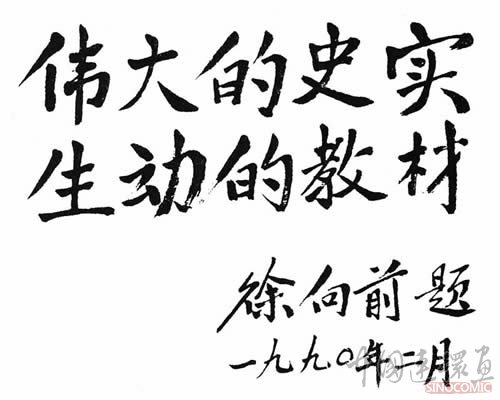 伟大的史实
生动的教材
徐向前 题
一九九〇年二月
中国连环画
SINOCOMIC